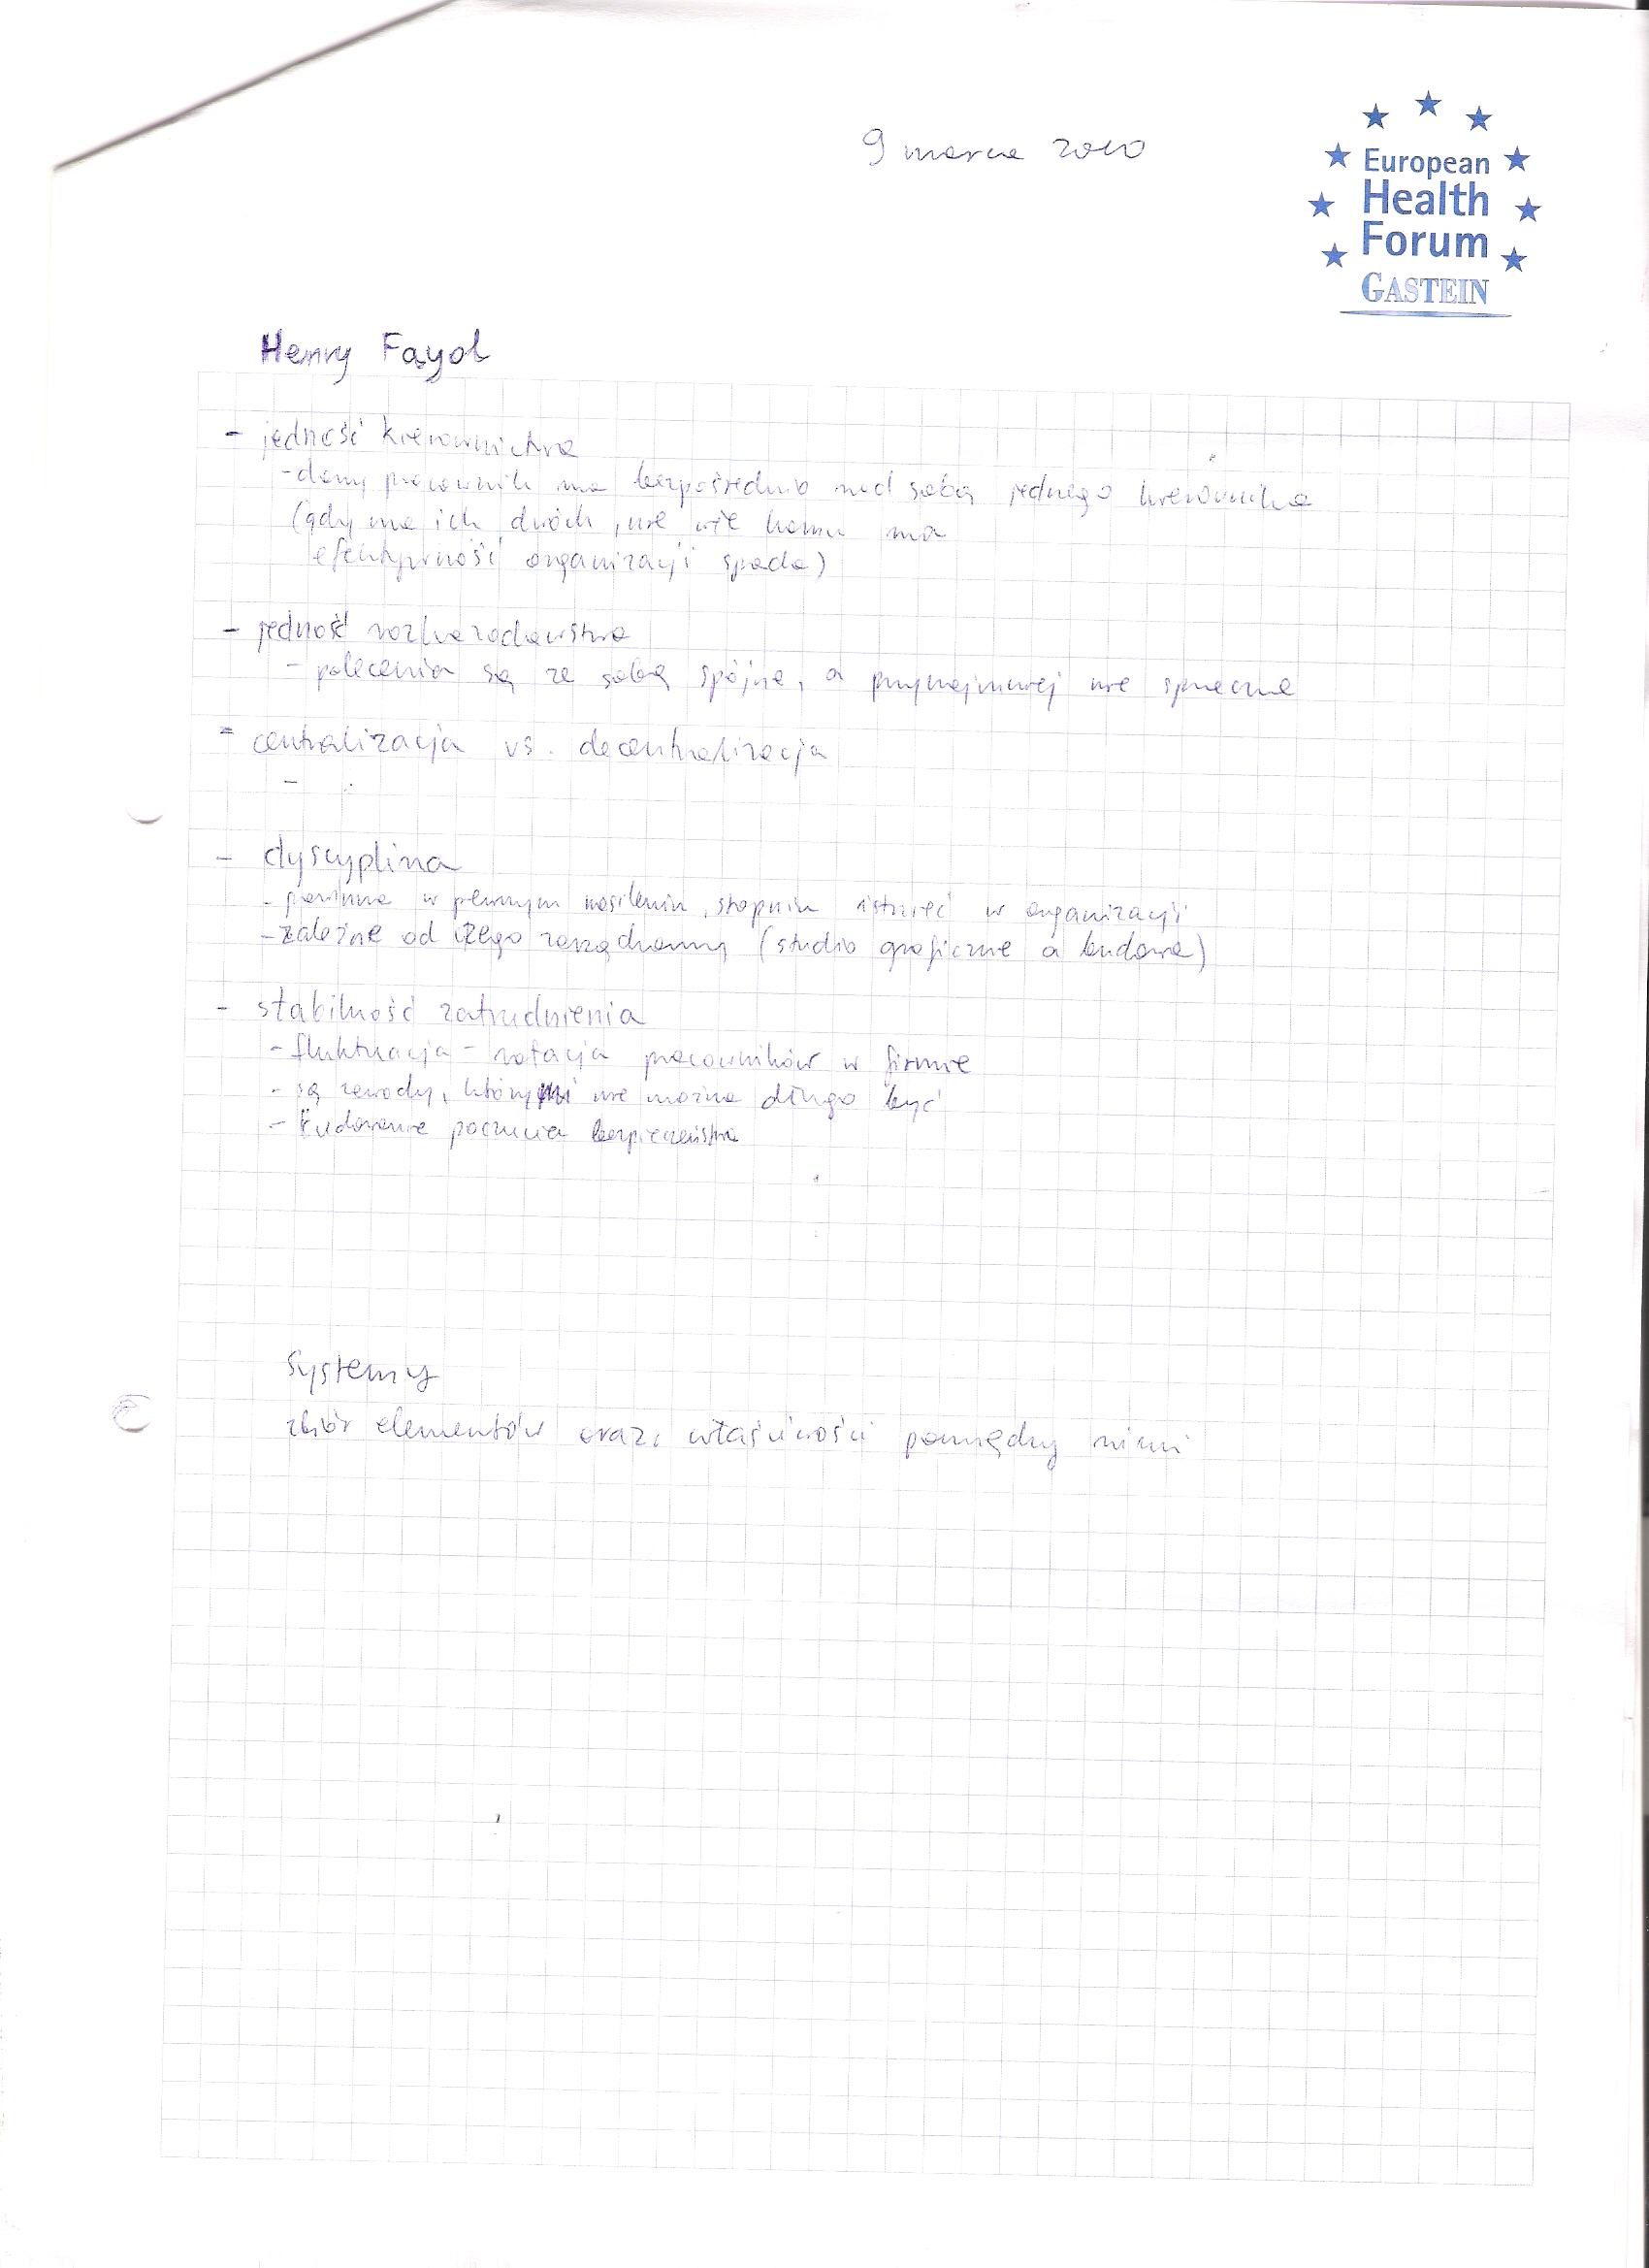 9 marca 2010
European
Health
Forum
GASTEIN
Henry Fayol
- jedność kierownictwa
- dany pracownik ma bezpośrednio nad sobą jednego kierownika
(gdy ma ich dwóch, nie wie komu ma
efektywność organizacji spada)
- jedność rozkazodawstwa
- polecenia są ze sobą spójne, a przynajmniej nie sprzeczne
- centralizacja vs. decentralizacja
-
- dyscyplina
- powinna w pewnym nasileniu, stopniu istnieć w organizacji
- zależne od czego zarządzamy (studio graficzne a budowa)
- stabilność zatrudnienia
- fluktuacja - rotacja pracowników w firmie
- są zawody, którymi nie można długo być
- budowanie poczucia bezpieczeństwa
Systemy
zbiór elementów oraz właściwości pomiędzy nimi